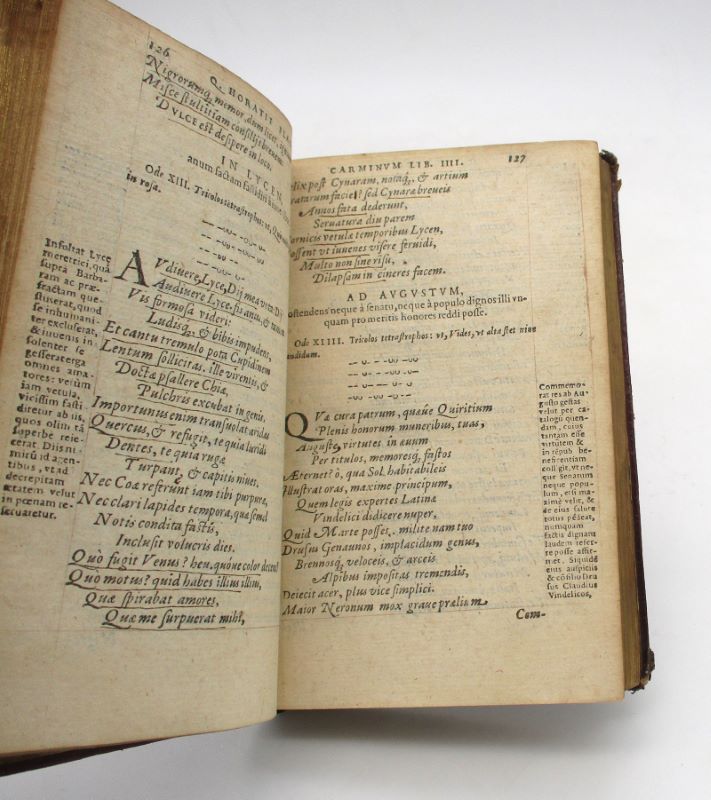 126
Q. HORATII FLA
Nigrorumq; memor, dum licet,
Misce stultitiam consilijs breuem:
DVLCE est desipere in loco.
IN LYCEN,
anum factam
Ode XIII. Tricolos tetrastrophos: vt,
in rosa.
Insultat Lyce
meretrici, quã
supra Barba-
ram ac præ-
fractam que-
stuserat, quod
se inhumani-
ter excluserat,
& iuuenis in-
solenter se
gesserat erga
omnes ama-
tores: verùm
iam vetula,
vicissim fasti-
diretur ab iis,
quos olim tã
superbe reie-
cerat. Diis ni-
mirũ id agen-
tibus, vt ad
decrepitam
ætatem velut
in pœnam re-
seruaretur.
AVdiuere, Lyce, Dij mea vota, Dij
Audiuere Lyce, fis anus, & tamen
Vis formosa videri:
Ludisq; & bibis impudens,
Et cantu tremulo pota Cupidinem
Lentum sollicitas. ille virentis, &
Doctæ psallere Chiæ,
Pulchris excubat in genis.
Importunus enim transuolat aridas
Quercus, & refugit, te quia luridi
Dentes, te quia rugæ
Turpant, & capitis niues.
Nec Coæ referunt iam tibi purpuræ,
Nec clari lapides tempora, quæ semel
Notis condita fastis,
Inclusit volucris dies.
Quò fugit Venus? heu, quoue color decens
Quo motus? quid habes illius illius,
Quæ spirabat amores,
Quæ me surpuerat mihi,
CARMINVM LIB. IIII. 127
elix post Cynaram, notaq, & artium
ratarum facies? sed Cynaræ breueis
Annos fata dederunt,
Seruatura diu parem
Cornicis vetulæ temporibus Lycen,
Possent vt iuuenes visere feruidi,
Multo non sine risu,
Dilapsam in cineres facem.
AD AVGVSTVM,
ostendens neque à senatu, neque à populo dignos illi vn-
quam pro meritis honores reddi posse.
Ode XIIII. Tricolos tetrastrophos: vt, Vides, vt alta stet niue
andidum.
QVæ cura patrum, quæue Quiritium
Plenis honorum muneribus, tuas,
Auguste, virtutes in æuum
Per titulos, memoresq; fastos
Æternet? ò, qua Sol habitabileis
Illustrat oras, maxime principum,
Quem legis expertes Latinæ
Vindelici didicere nuper,
Quid Marte posset. milite nam tuo
Drusus Genaunos, implacidum genus,
Brennosq; veloceis, & arceis
Alpibus impositas tremendis,
Deiecit acer, plus vice simplici.
Maior Neronum mox graue prælium
Com-
Commemo-
rat res ab Au-
gusto gestas
velut per ca-
talogũ quen-
dam, cuius
tantam esse
virtutem &
in rẽpub. be-
neficentiam
colligit, vt ne-
que senatum
neque popu-
lum, etsi ma-
ximè velit, &
de eius salute
totus pẽdeat,
nunquam
factis dignam
laudem refer-
re posse affir-
met. Siquidẽ
eius auspiciis
& cõsilio Dru
sus Claudius
Vindelicos,